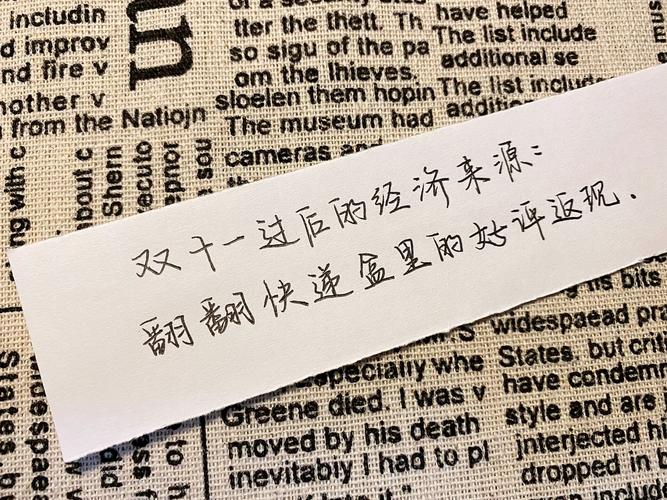 includin
d improv
nd fire v
nother v
from the Natiojn
m
tter the thett. Th
so sigu of the pa
om the lhieves.
sloelen them hopin
The museum had
cameras and
have helped
The list include
additional se
The list include
additio
ng with c
about c
Shern
ecuto
epnor
e sou
双十一过后的经济来源：
翻翻快递盒里的好评返现.
ng its bits
widespaead pra
States, but criti
have condemn
style and are
jnterjected hi
dropped in
includ
especially whe
Greene died. I was v
moved by his death
inevitably I had to pl
States, b
idespae
did